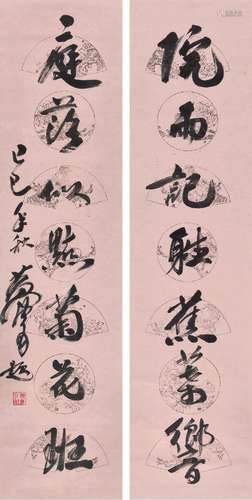 院雨記聽蕉葉響
庭落似點菊花班
己巳年秋
題